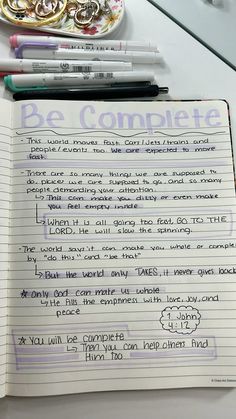 Be Complete
- This world moves fast. Cars/Jets/trains and
people/events too. We are expected to move
fast.
- There are so many things we are supposed to
do, places we are supposed to go, and so many
people demanding your attention.
↳ This can make you dizzy or even make
you feel empty inside.
↳ When it is all going too fast, GO TO THE
LORD, He will slow the spinning.
- The world says it can make you whole or complete
by "do this" and "be that"
↳ But the world only TAKES, it never gives back
☆ Only God can make us whole
↳ He fills the emptiness with love, joy, and
peace
1 John
4:12
☆ You will be complete
↳ Then you can help others find
Him too